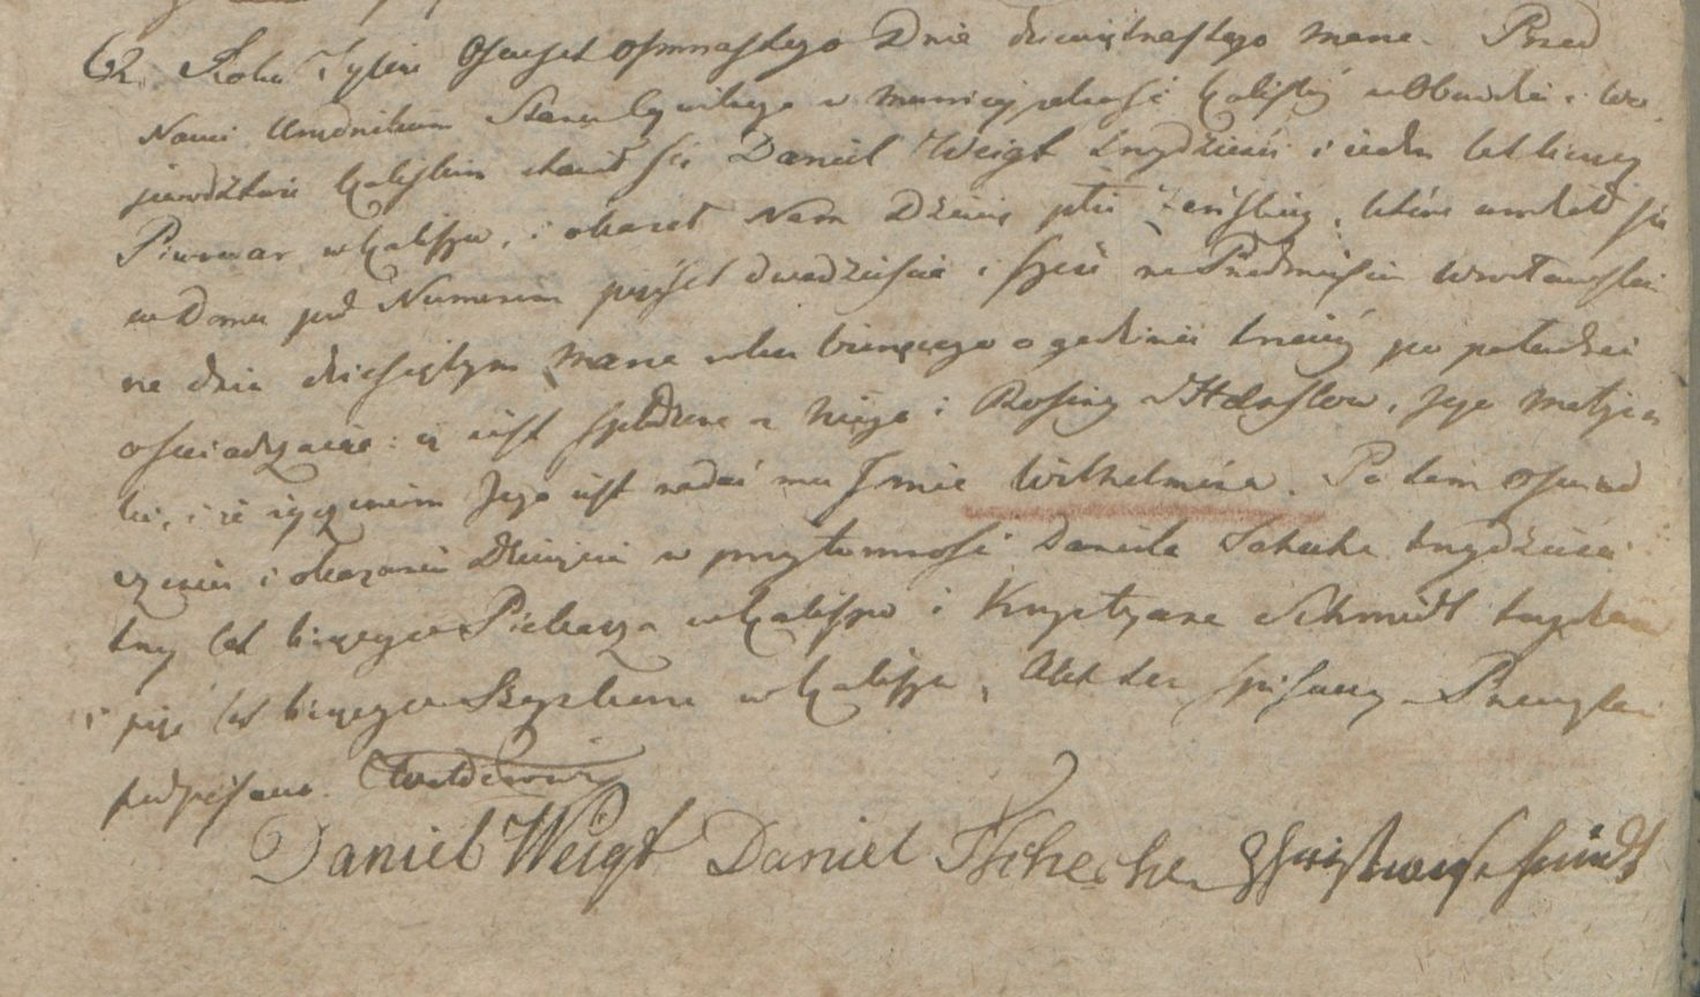 62. Roku Tysiąc Osmset osmnastego Dnia dziewiętnastego Marca. Przed
Nami Urzędnikiem Stanu Cywilnego w Municypalności Kaliskiey w Obwodzie i Wo
jewodztwie Kaliskim stawił się Daniel Weigt trzydzieści i ieden lat liczący
Piwowar w Kaliszu, i okazał Nam Dziecię płci żeńskiey, które urodziło się
w Domu pod Numerem pięćset dwadzieścia i sześć na Przedmieściu Wrocławskim
na dniu dziesiątym Marca roku bieżącego o godzinie trzeciey po południu
oświadczaiąc: iż iest spłodzone z Niego i Rosiny Jego Małżon
ki, i że życzeniem Jego iest nadać mu Imie Wilhelmina. Po tem oświad
czeniu i okazaniu Dziecięcia w przytomności Daniela trzydzieści
trzy lat liczącego Piekarza w Kaliszu i Krystyana Schmidt trzydzieści
i pięć lat liczącego w Kaliszu, Akt ten spisany Przeczytano
podpisano.
Daniel Weigt Daniel Tschecke Christian Schmidt